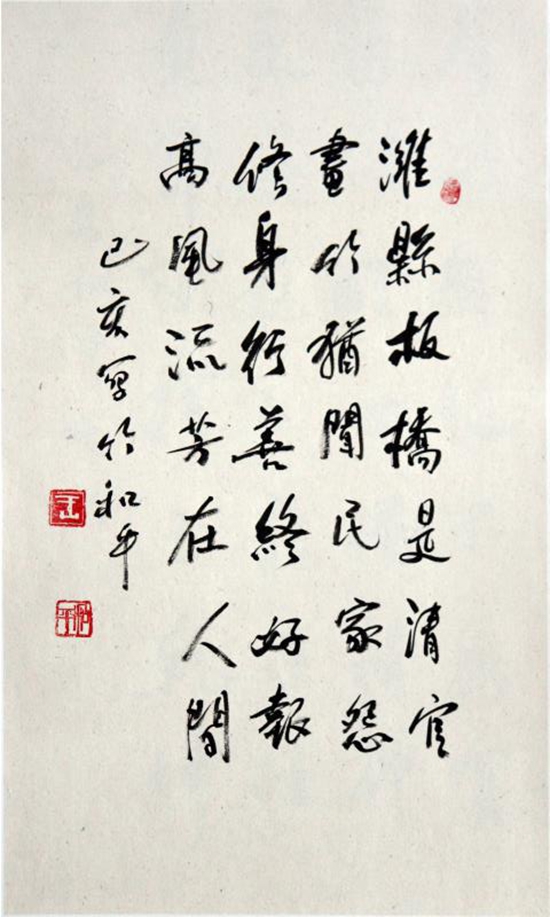 濰縣板橋是清官
畫竹猶聞民家怨
修身行善終好報
高風流芳在人間
己亥寫竹和平